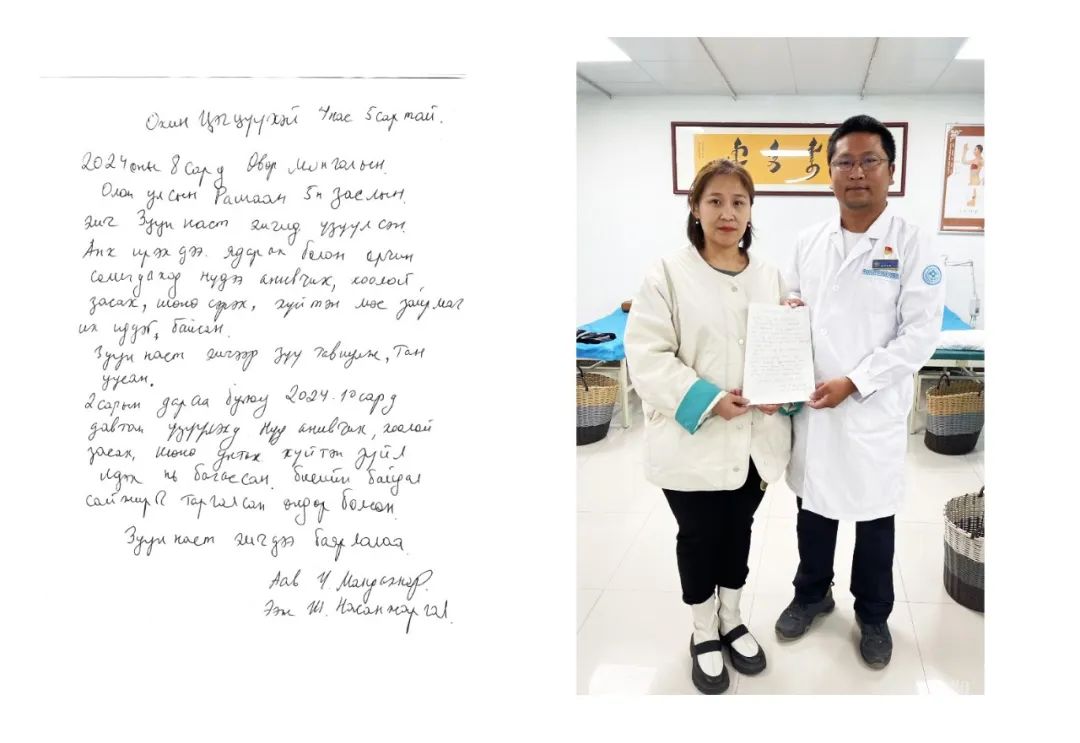 Охин Цэцүүхэй 4 нас 5 сартай.
2024 оны 8 сард Өвөр Монголын
Олон улсын Рашаан 5н заслын
эмч Зуун наст эмчид үзүүлсэн
Анх ирэхдээ. ядарах болон орчин
солигдоход нүдээ анивчих, хоолой
засах, шөнө сэрэх, хүйтэн мөс зайрмаг
их иддэг байсан.
Зуун наст эмчээр зүү тавиулж, тан
уусан.
2 сарын дараа буюу 2024.10 сард
давтан үзүүлэхэд нүд анивчих, хоолой
засах, шөнө хүйтэн зүйл
идэх нь багассан. биеийн байдал
сайжирч таргалсан өндөр болсон.
Зуун наст эмчдээ баярлалаа
Аав Ч.
Ээж Ш. Насанжаргал.